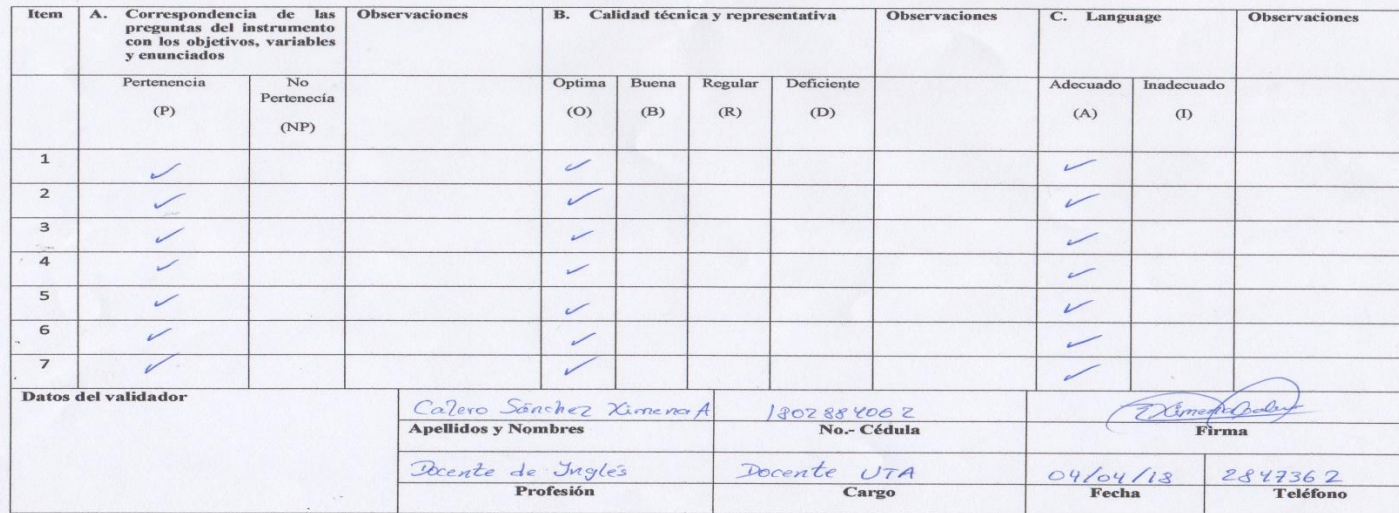 Item A. Correspondencia de las preguntas del instrumento con los objetivos, variables y enunciados Observaciones B. Calidad técnica y representativa Observaciones C. Language Observaciones
Pertenencia No Pertenecía Optima Buena Regular Deficiente Adecuado Inadecuado
(P) (NP) (O) (B) (R) (D) (A) (I)
1 ✓ ✓ ✓
2 ✓ ✓ ✓
3 ✓ ✓ ✓
4 ✓ ✓ ✓
5 ✓ ✓ ✓
6 ✓ ✓ ✓
7 ✓ ✓ ✓
Datos del validador
Calero Sánchez Ximena A 1802884062
Apellidos y Nombres No.- Cédula Firma
Docente de Inglés Docente UTA 04/04/18 2847362
Profesión Cargo Fecha Teléfono